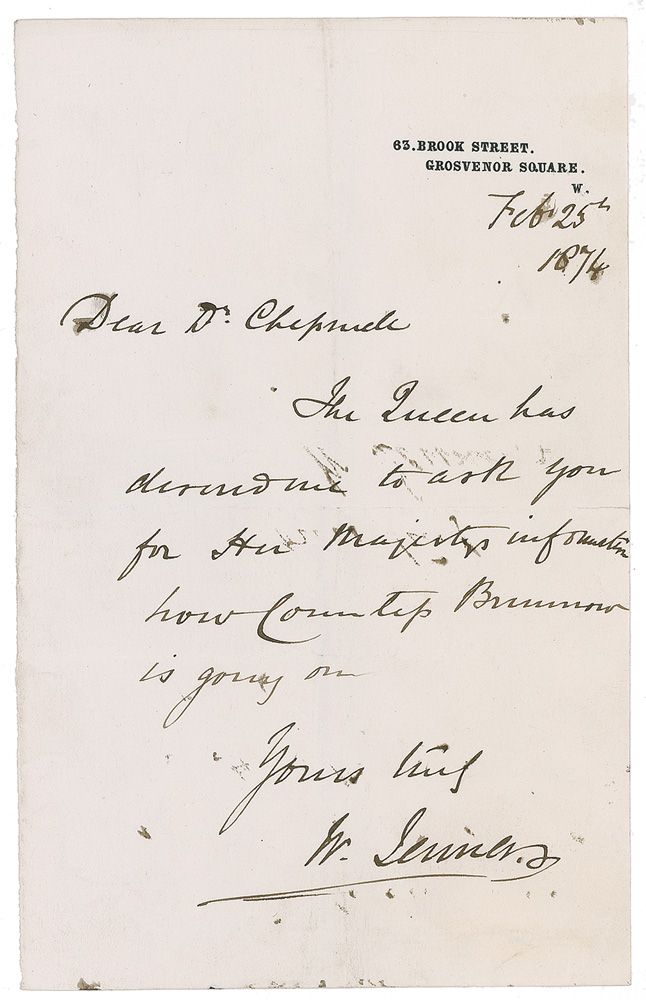 63. BROOK STREET.
GROSVENOR SQUARE.
W.
Feb 25th
1874
Dear Dr.
The Queen has
desired me to ask you
for Her Majestys information
how Countess Brunnow
is going on
Yours truly
W. Jenner